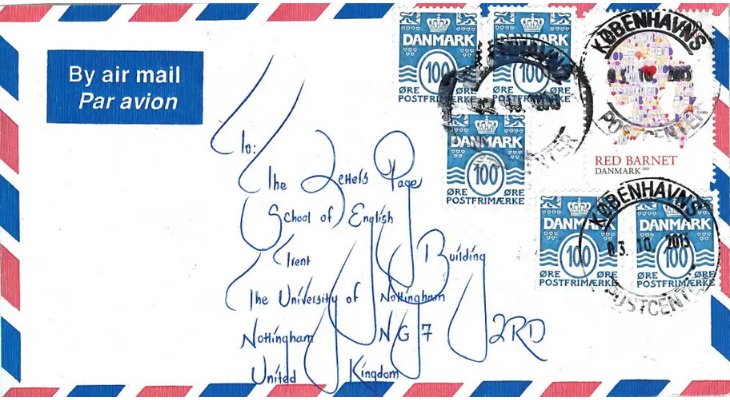 By air mail
Par avion
DANMARK
100
ØRE ØRE
POSTFRIMÆRKE
DANMARK
100
ØRE ØRE
POSTFRIMÆRKE
KØBENHAVNS
03. 10. 2013
POSTCENTER
RED BARNET
DANMARK
DANMARK
100
ØRE ØRE
POSTFRIMÆRKE
DANMARK
100
ØRE ØRE
POSTFRIMÆRKE
DANMARK
100
ØRE ØRE
POSTFRIMÆRKE
KØBENHAVNS
03. 10. 2013
POSTCENTER
To:
The Letters Page
School of English
Trent Building
The University of Nottingham
Nottingham NG7 2RD
United Kingdom